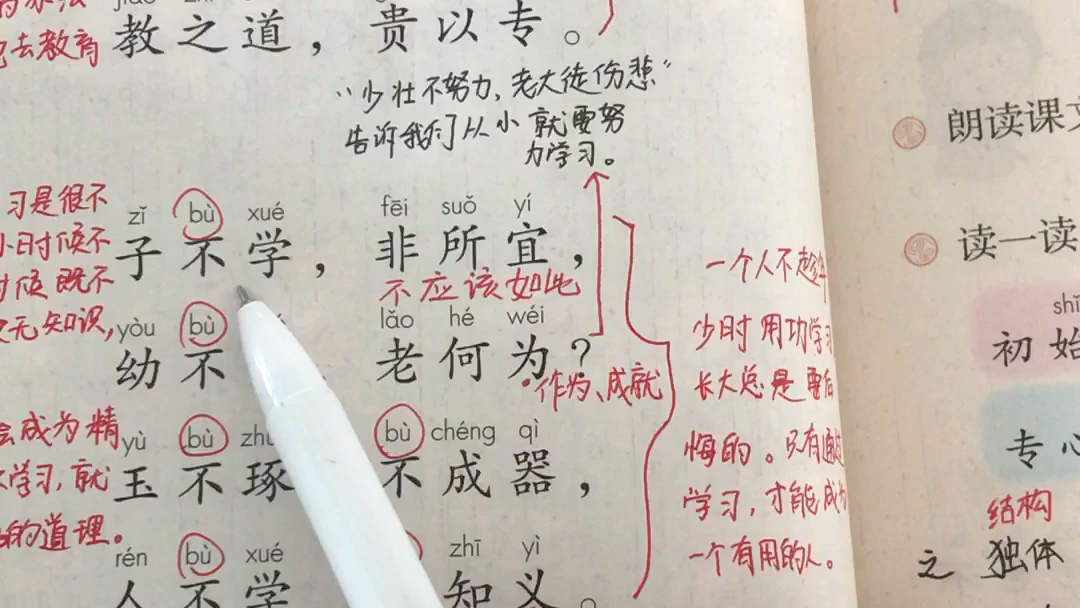 教之道，贵以专。
也去教育
“少壮不努力，老大徒伤悲”
告诉我们从小就要努
力学习。
习是很不
小时候不
时候既不
无知识，
zǐ bù xué fēi suǒ yí
子不学，非所宜，
不应该如此
yòu bù lǎo hé wéi
幼不 老何为？
作为、成就
yù bù bù chéng qì
玉不琢 不成器，
rén bù xué zhī yì
人不学 知义。
会成为精
学习，就
的道理。
一个人不趁年
少时用功学习
长大总是要后
悔的。只有通过
学习，才能成为
一个有用的人。
朗读课文
读一读
shǐ
初始
专心
结构
之 独体